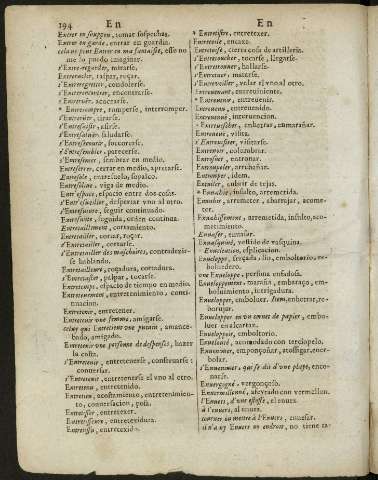 194 En En
Entrer en soupçon, tomar sospechas.
Entrer en garde, entrar en guardia.
cela ne peut Entrer en ma fantasie, esso no
me lo puedo imaginar.
s'Entre-regarder, mirarse.
Entreracler, raspar, roçar.
s'Entreregreter, condolerse.
s'Entrerencontrer, encontrarse.
s'Entreruer, acocearse.
* Entrerompre, romperse, interromper.
s'Entretirer, tirarse.
s'Entresaisir, asirse.
s'Entresaluër, saludarse.
s'Entresecourir, soccorerse.
s'Entresembler, parecerse.
s'Entresemer, sembrar en medio.
Entreserrer, cerrar en medio, apretarse.
Entresole, entresuelo, sopalco.
Entresoliue, viga de medio.
Entr'espace, espacio entre dos cosas.
s'Entr'esueiller, despertar vno al otro.
Entresuiuant, seguir continuado.
Entresuitte, seguida, orden continua.
Entretaillement, cortamiento.
Entretailler, cortar, roçar.
s'Entretailler, cortarse.
s'Entretailler des maschoires, contradezir-
se hablando.
Entretailleure, roçadura, cortadura.
s'Entretaster, palpar, tocarse.
Entretemps, espacio de tiempo en medio.
Entretenement, entretenimiento, conti-
nuacion.
Entretenir, entretener.
Entretenir vne femme, amigarse.
celuy qui Entretient vne putain, amance-
bado, amigado.
Entretenir vne personne de despense, hazer
la costa.
s'Entretenir, entretenerse, conseruarse:
conuersar.
s'Entretenir, entretenerse el vno al otro.
Entretenu, entretenido.
Entretien, acostamiento, entretenimien-
to, conuersacion, posa.
Entretisser, entretexer.
Entretisseure, entretexidura.
Entretissu, entretexido.
* Entretistre, entretexer.
Entretoise, encaxo.
Entretoise, cierta cosa de artilleria.
s'Entretoucher, tocarse, llegarse.
s'Entretrouuer, hallarse.
s'Entretuer, matarse.
s'Entreueiller, velar el vno al otro.
Entreuenant, entreuiniente.
* Entreuenir, entreuenir.
Entreuenu, entreuenido.
Entreuenuë, interuencion.
* Entreuescher, embeuar, enmarañar.
Entreueuë, visita.
s'Entreuisiter, visitarse.
Entreuoir, columbrar.
Entroner, entronar.
Entroupeler, arrebañar.
Entromper, idem.
Entuiler, cubrir de tejas.
* Enuahie, insulto, arremetida.
Enuahir, arremeter, abarrajar, acome-
ter.
Enuahissement, arremetida, insulto, aco-
metimiento.
Enuaser, entalar.
Enuasquiné, vestido de vasquina.
* Enucleation, esplicacion.
Enueloppe, freçada, lio, emboltorio, re-
boluedero.
vne Enueloppe, persona enfadosa.
Enueloppement, maraña, embaraço, em-
boluimiento, intrigadura.
Envelopper, emboluer. Item, embetrar, re-
borujar.
Enuelopper en vn cornet de papier, embo-
luer en alcartax.
Enueloppoir, emboltorio.
Enuelouté, acomodado con terciopelo.
Enuenimer, emponçoñar, atossigar, enco-
bolar.
s'Enuenimer, qui se dit d'une playe, enco-
narse.
Enuergogné, vergonçoso.
Enuermillonné, afeytado con vermellon.
l'Enuers, d'une estoffe, el enues.
à l'enuers, al enues.
tourner ou mettre à l'Enuers, enuesar.
il n'a ny Enuers ny endroit, no tiene ta-